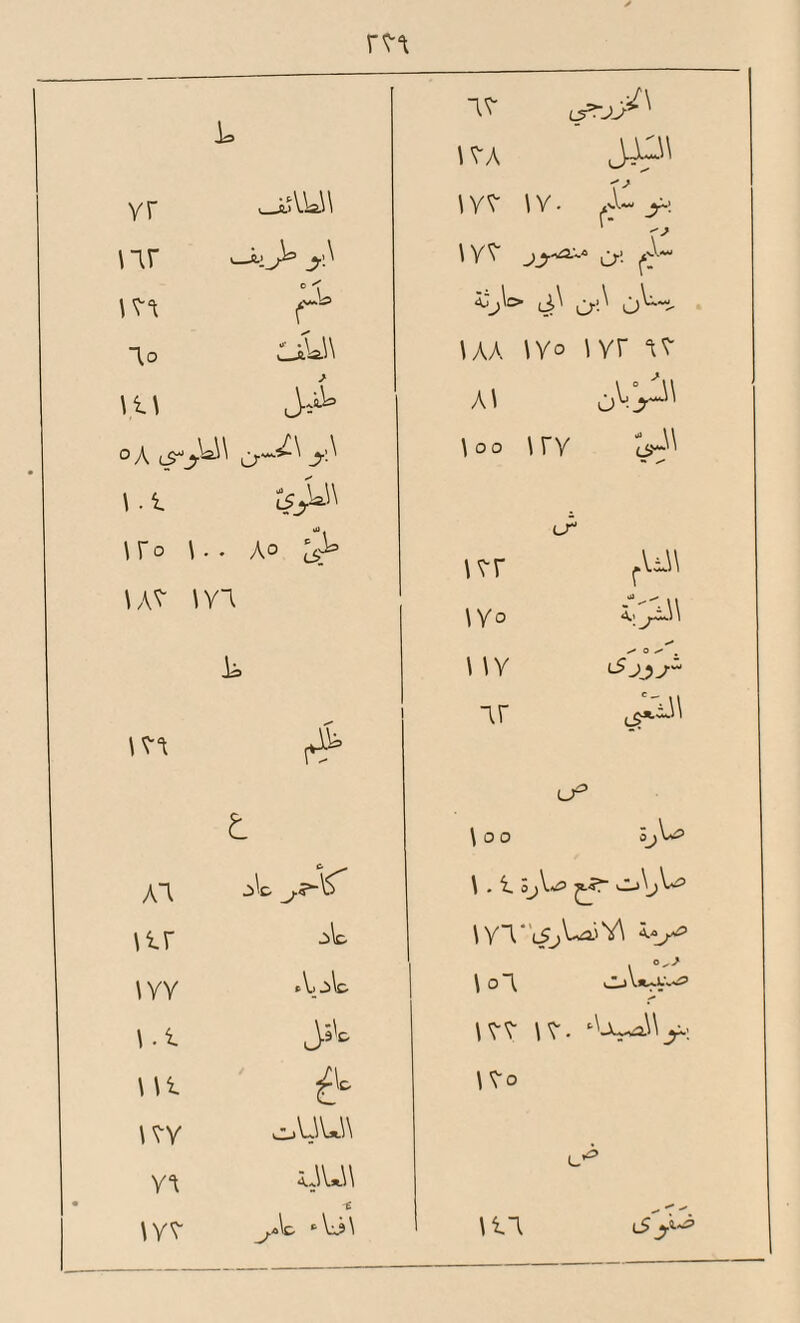 ٢٣٩
الخزرجى ٦٣
السَّلِيل ١٣٨
بنو سُلَيم ١٧٠ ١٧٣
سُلَيم بن منصور ١٧٣
سنان ابن ابى حارثة
٩٣ ١٧٢ ١٧٥ ١٨٨
السُّوْبان ٨١
السِىّ ١٢٧ ١٥٥
ش
الشام ١٣٢
الشَرَبَّة ١٧٥
شَرَوْرَى ١١٧
الشَعْبى ٦٢
ص
صارة ١٥٥
صارات جمع صارة ١٠٤
صرمة الانصارى ١٧٦
صُنَيْبِعات ١٥٦
بنو الصيداء ١٣٠ ١٣٣
١٣٥
ض
ضَفَوَى ١٤٦
ط
الطائف ٧٢
ابو طريف ١٦٢
طَسْم ١٣٩
الطَفّ ٦٥
طُفيل ١٤١
ابو الحسن الطوسى ٥٨
الطَوىّ ١٠٤
طىّء ٨٥ ١٠٠ ١٢٥
١٧٦ ١٨٣
ظ
ظَلِم ١٣٩
ع
كأحمر عاد ٨٦
عاد ١٤٢
عادياء ١٧٧
عاقل ١٠٤
عالج ١١٤
العاليات ١٣٧
العالية ٧٩
أفناء عامر ١٧٣